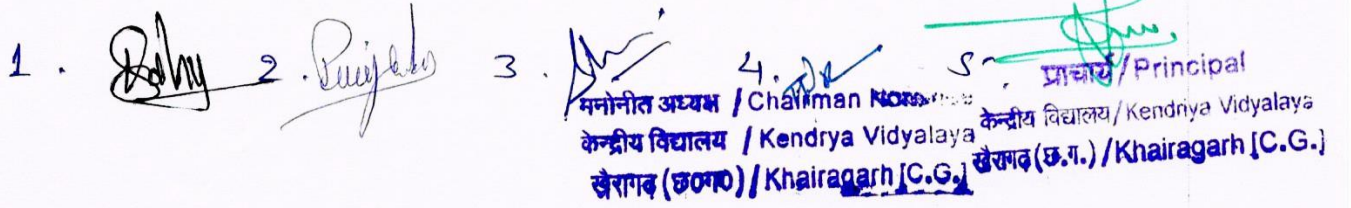 1. 2. 3. 4. 5.
मनोनीत अध्यक्ष / Chairman
केन्द्रीय विद्यालय / Kendrya Vidyalaya
खैरागढ़ (छ०ग०) / Khairagarh [C.G.]
प्राचार्य / Principal
केन्द्रीय विद्यालय / Kendriya Vidyalaya
खैरागढ़ (छ.ग.) / Khairagarh [C.G.]